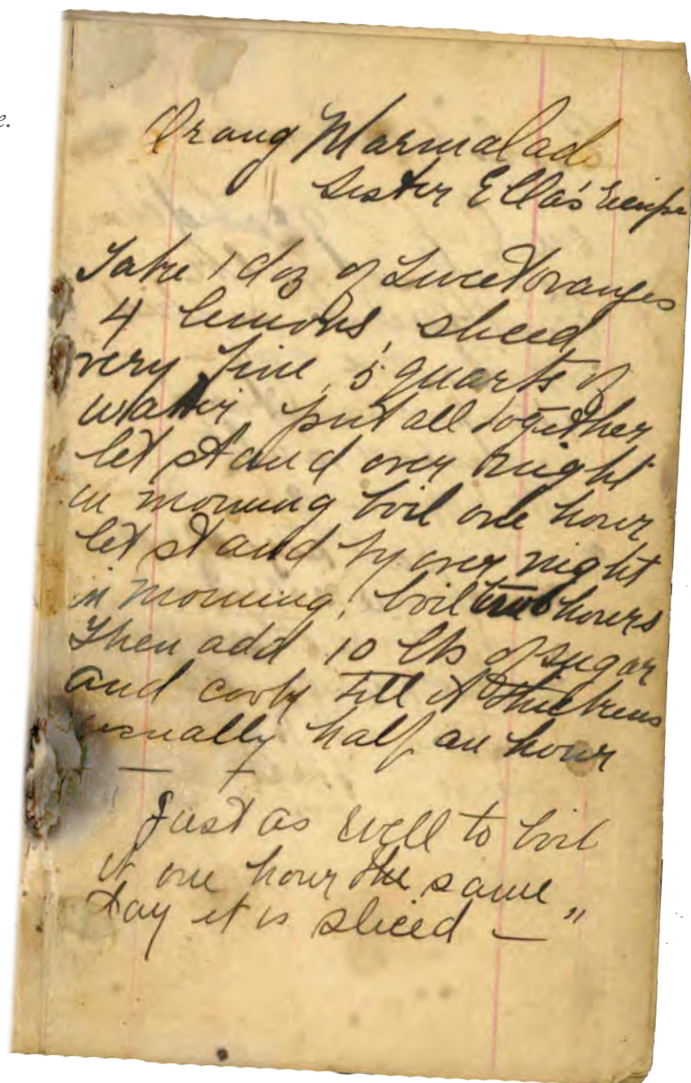 e.
Orang Marmalade
Sister Ella's Recipe
Take 1 doz of Sweet oranges
4 lemons, sliced
very fine, 5 quarts of
water put all together
let stand over night
in morning boil one hour
let stand over night
in morning, boil two hours
Then add 10 lbs of sugar
and cook till it thickens
usually half an hour
" Just as well to boil
it one hour the same
day it is sliced — "